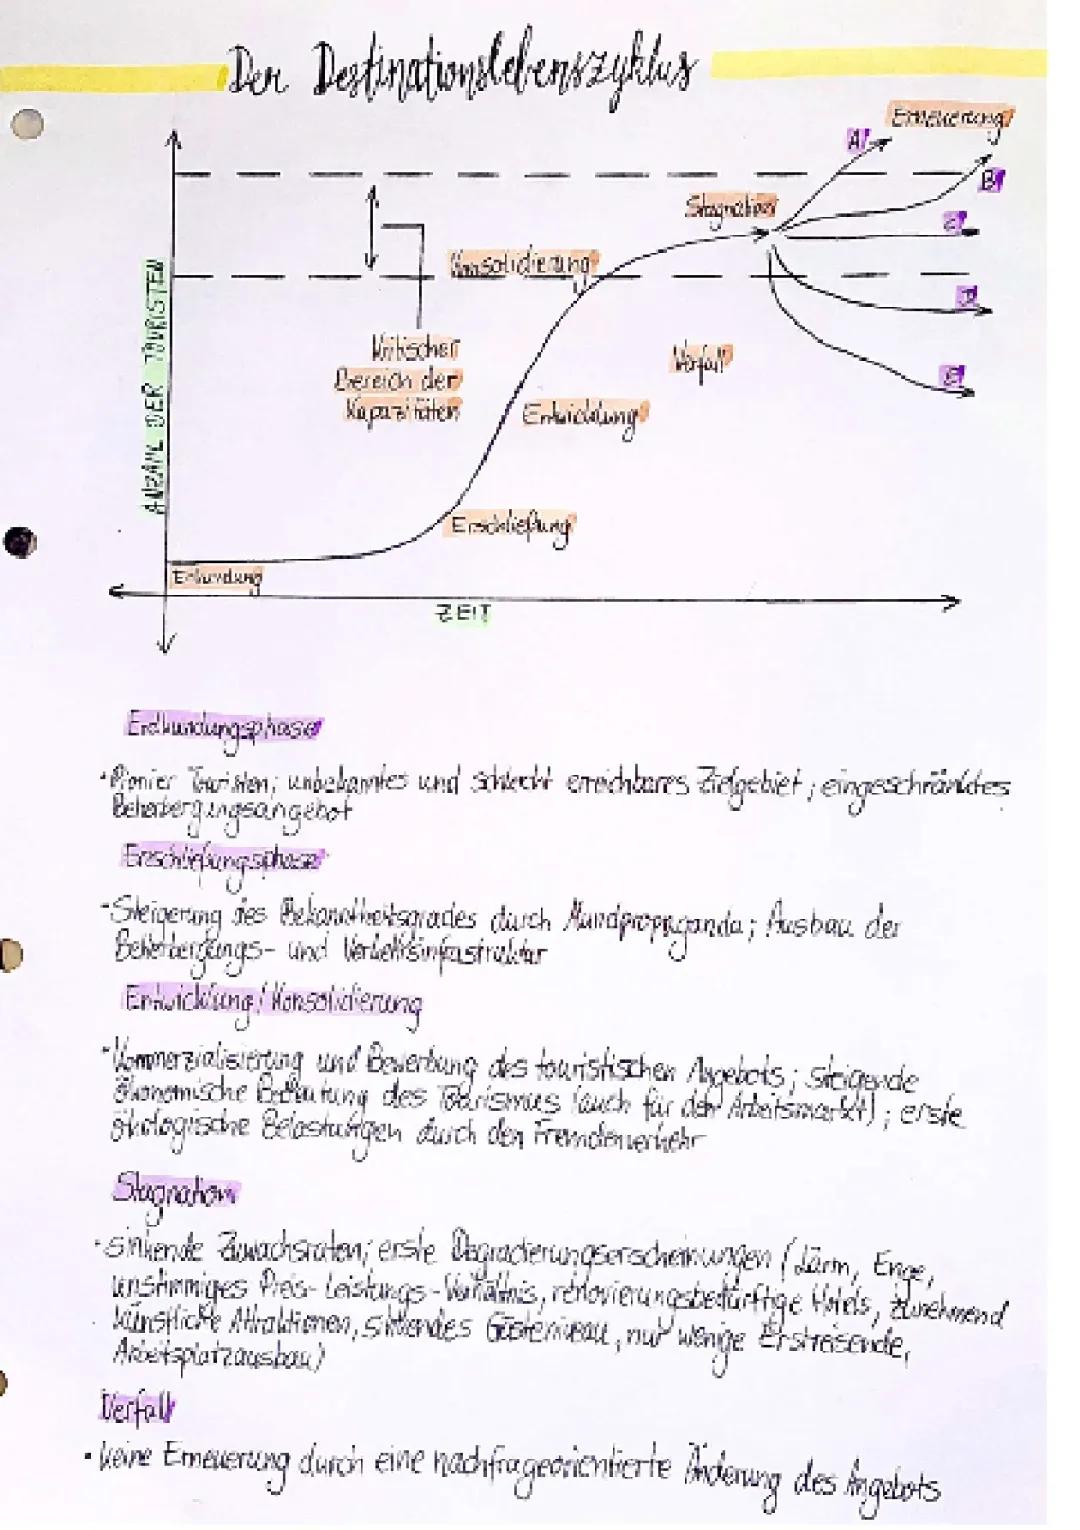 Der Destinationslebenszyklus
Erneuerung
A
B
Stagnation
C
Konsolidierung
D
ANZAHL DER TOURISTEN
Kritischer
Bereich der
Kapazitäten
Verfall
E
Entwicklung
Erschließung
Erkundung
ZEIT
Erdkundungsphase
Pionier Touristen; unbekanntes und schlecht erreichbares Zielgebiet; eingeschränktes
Beherbergungsangebot
Erschließungsphase
-Steigerung des Bekanntheitsgrades durch Mundpropaganda; Ausbau der
Beherbergungs- und Verkehrsinfrastruktur
Entwicklung/Konsolidierung
Kommerzialisierung und Bewerbung des touristischen Angebots; steigende
ökonomische Bedeutung des Tourismus (auch für den Arbeitsmarkt); erste
ökologische Belastungen durch den Fremdenverkehr
Stagnation
• sinkende Zuwachsraten; erste Degradierungserscheinungen (Lärm, Enge,
unstimmiges Preis-Leistungs-Verhältnis, renovierungsbedürftige Hotels, zunehmend
künstliche Attraktionen, sinkendes Gästeniveau, nur wenige Erstreisende,
Arbeitsplatzausbau)
Verfall
• keine Erneuerung durch eine nachfrageorientierte Änderung des Angebots